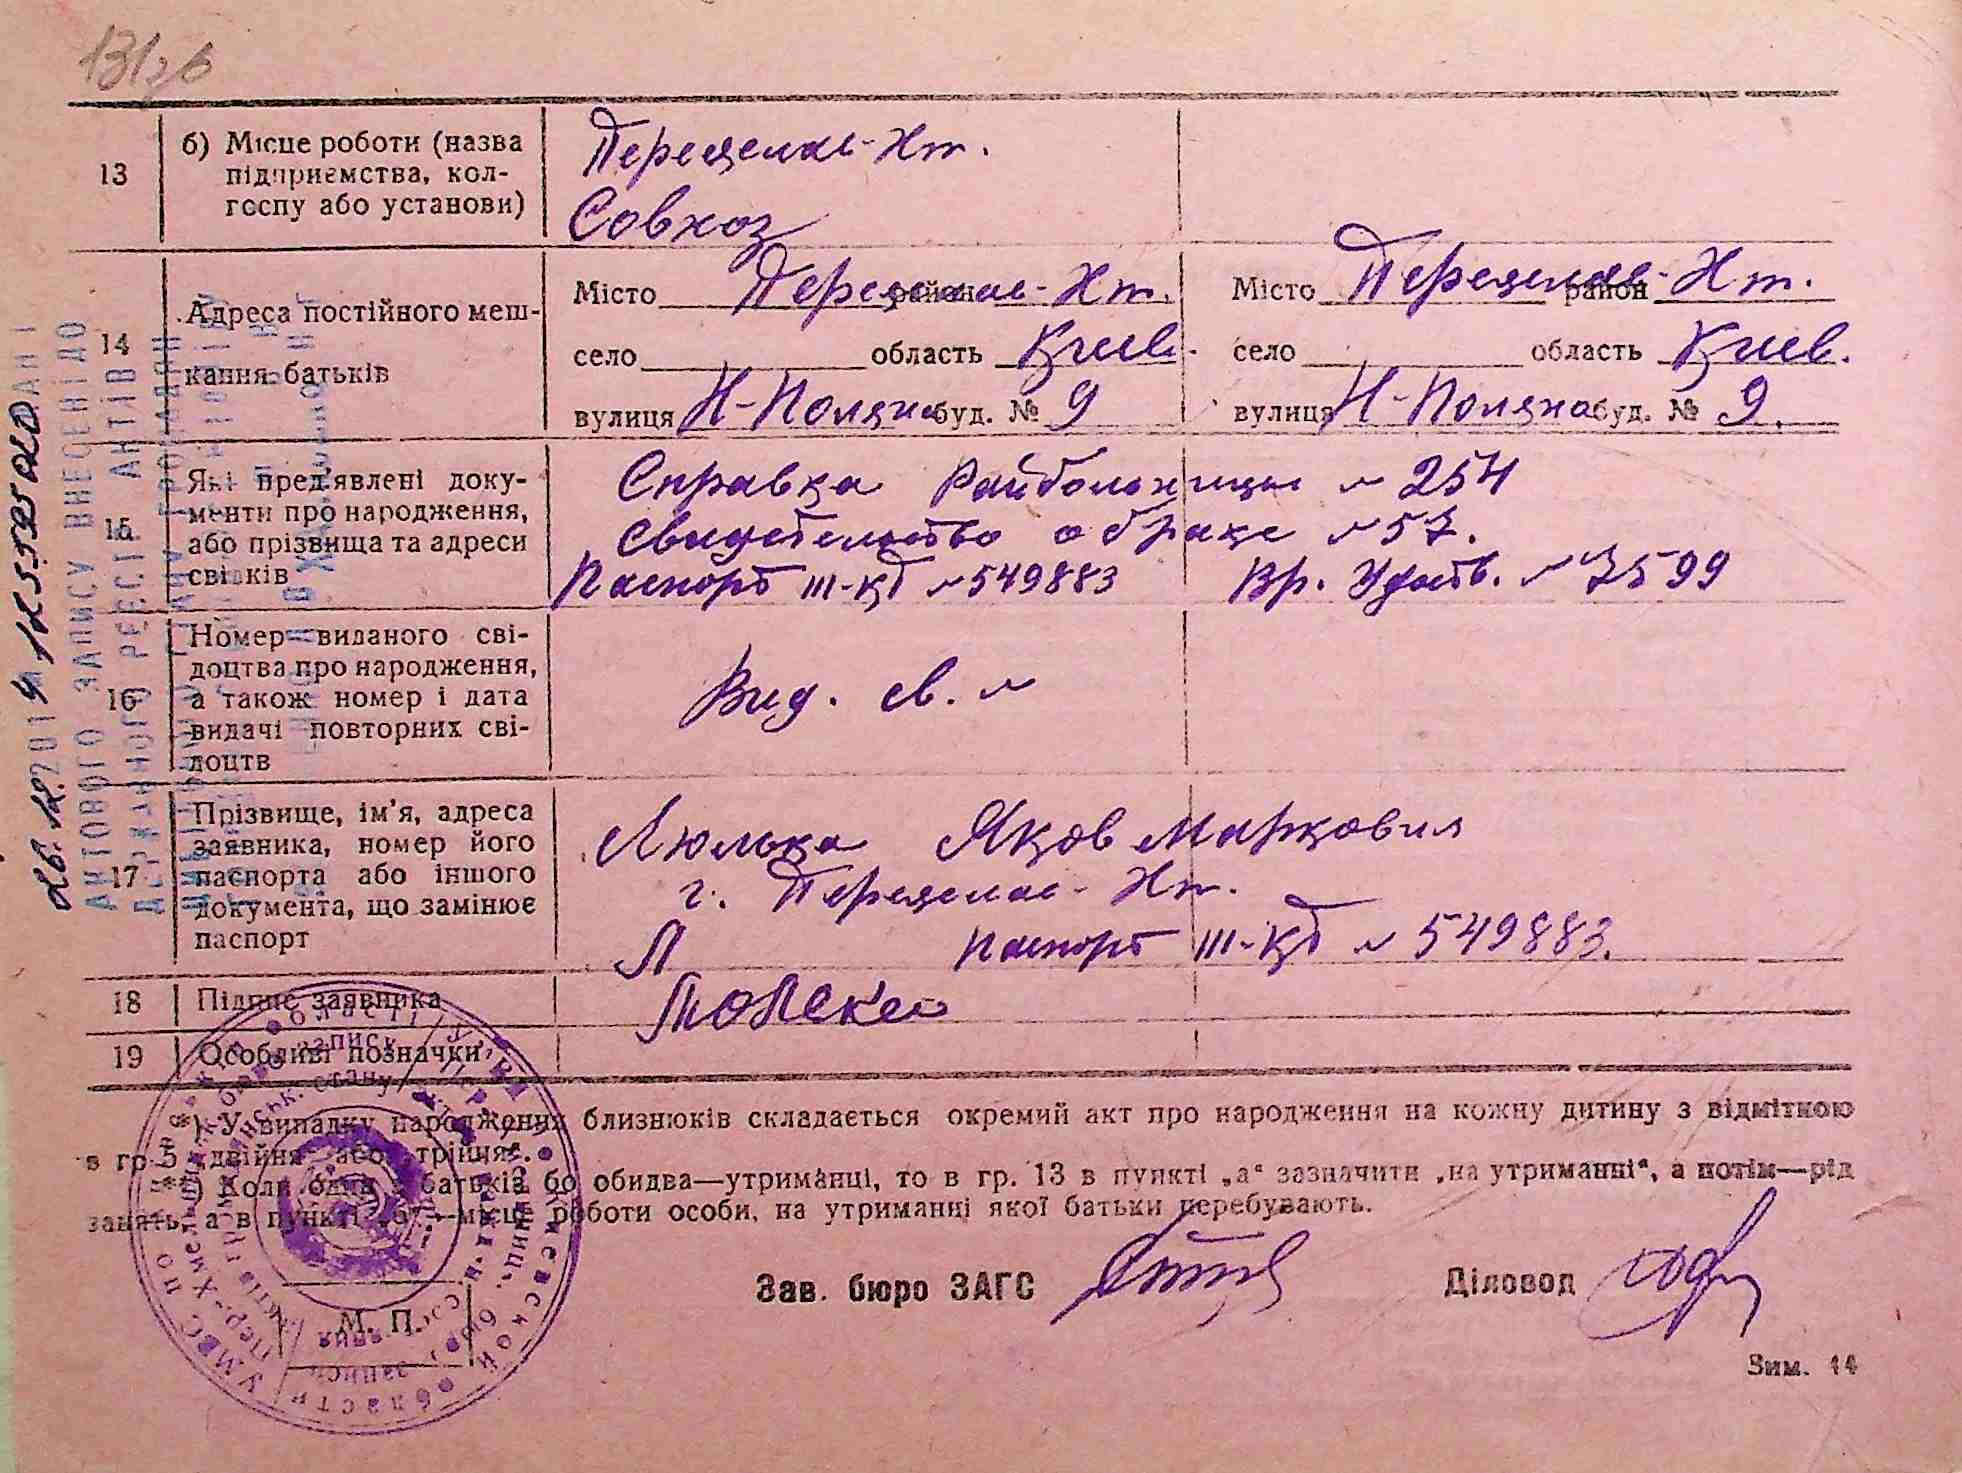 13 б) Місце роботи (назва підприємства, колгоспу або установи)
Переяслав-Хм.
Совхоз
14 Адреса постійного мешкання батьків
Місто Переяслав-Хм. район
село область Киев.
вулиця Н-Поляна буд. № 9
Місто Переяслав-Хм. район
село область Киев.
вулиця Н-Поляна буд. № 9.
15 Які пред'явлені документи про народження, або прізвища та адреси свідків
Справка Райбольницы № 254
Свидетельство о браке № 57.
Паспорт III-КТ № 549883 Вр. Удост. № 7599
16 Номер виданого свідоцтва про народження, а також номер і дата видачі повторних свідоцтв
Вид. св. №
17 Прізвище, ім'я, адреса заявника, номер його паспорта або іншого документа, що замінює паспорт
Люлька Яков Маркович
г. Переяслав-Хм.
Паспорт III-КТ № 549883.
18 Підпис заявника
19 Особливі позначки
*) У випадку народження близнюків складається окремий акт про народження на кожну дитину з відміткою
в гр. 5 „двійня" або „трійня".
Коли один з батьків або обидва—утриманці, то в гр. 13 в пункті „а" зазначити „на утриманні", а потім—рід
занять, а в пункті „б"—місце роботи особи, на утриманні якої батьки перебувають.
Зав. бюро ЗАГС
Діловод
М. П.
Зим. 14
АКТОВОГО ЗАПИСУ ВНЕСЕНІ ДО
ДЕРЖАВНОГО РЕЄСТРУ АКТІВ